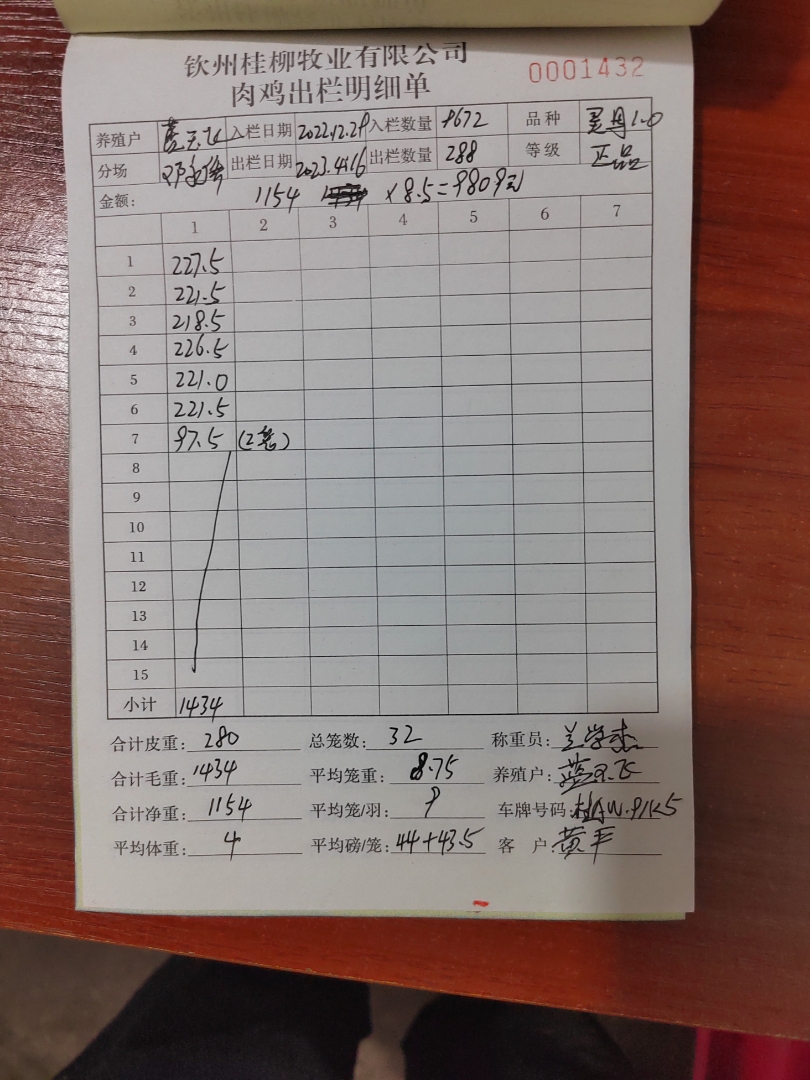 钦州桂柳牧业有限公司
肉鸡出栏明细单 0001432
养殖户 蓝天飞 入栏日期 2022.12.29 入栏数量 9672 品种 灵凤1.0
分场 邓永 出栏日期 2023.4.16 出栏数量 288 等级 正品
金额: 1154 × 8.5 = 9809元
1 2 3 4 5 6 7
1 227.5
2 221.5
3 218.5
4 226.5
5 221.0
6 221.5
7 97.5 (2笼)
8
9
10
11
12
13
14
15
小计 1434
合计皮重: 280 总笼数: 32 称重员: 兰学杰
合计毛重: 1434 平均笼重: 8.75 养殖户: 蓝天飞
合计净重: 1154 平均笼/羽: 9 车牌号码:
平均体重: 4 平均磅/笼: 44+43.5 客户: 黄